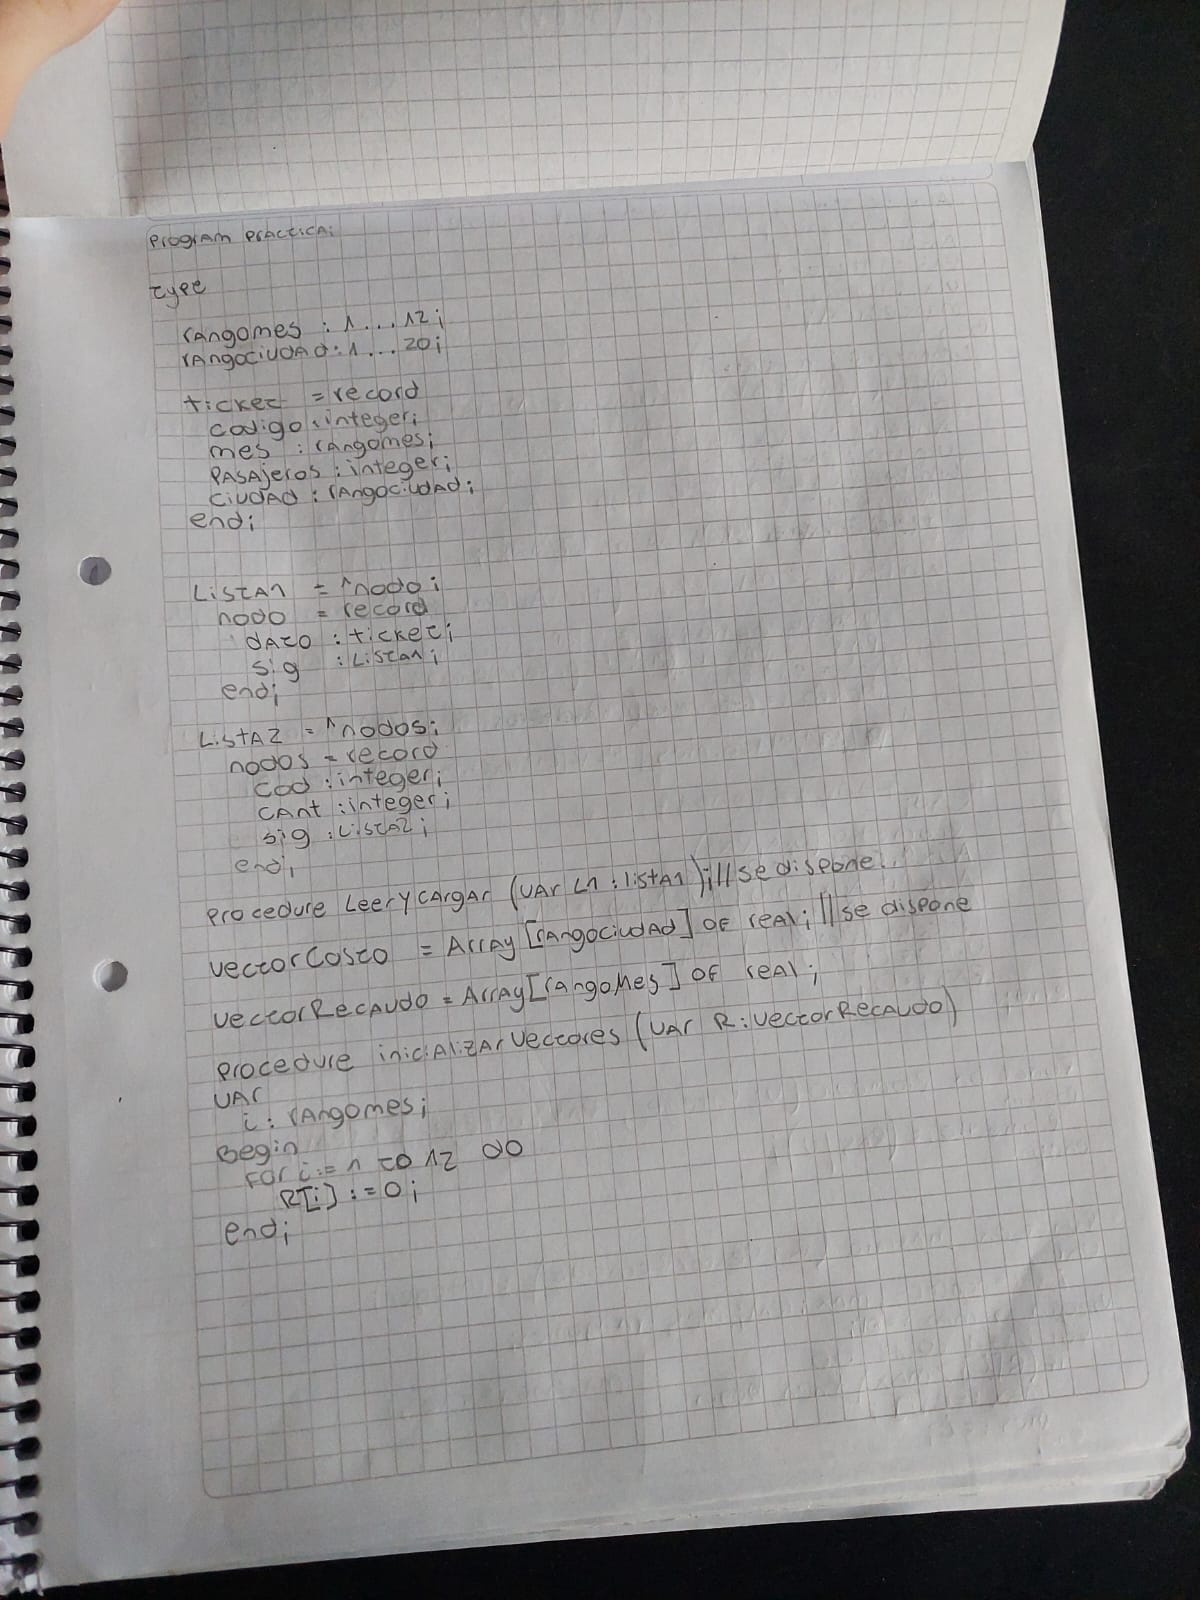 Program Practica;
type
rangomes : 1...12;
rangociudad : 1...20;
ticket = record
codigo : integer;
mes : rangomes;
Pasajeros : integer;
ciudad : rangociudad;
end;
Lista1 = ^nodo;
nodo = record
dato : ticket;
sig : Lista1;
end;
Lista2 = ^nodos;
nodos = record
cod : integer;
cant : integer;
sig : Lista2;
end;
Procedure LeeryCargar (var L1 : lista1); // se dispone.
vectorCosto = Array [rangociudad] of real; // se dispone
vectorRecaudo = Array [rangoMes] of real;
Procedure inicializarVectores (var R : vectorRecaudo)
var
i : rangomes;
Begin
For i := 1 to 12 do
R[i] := 0;
end;